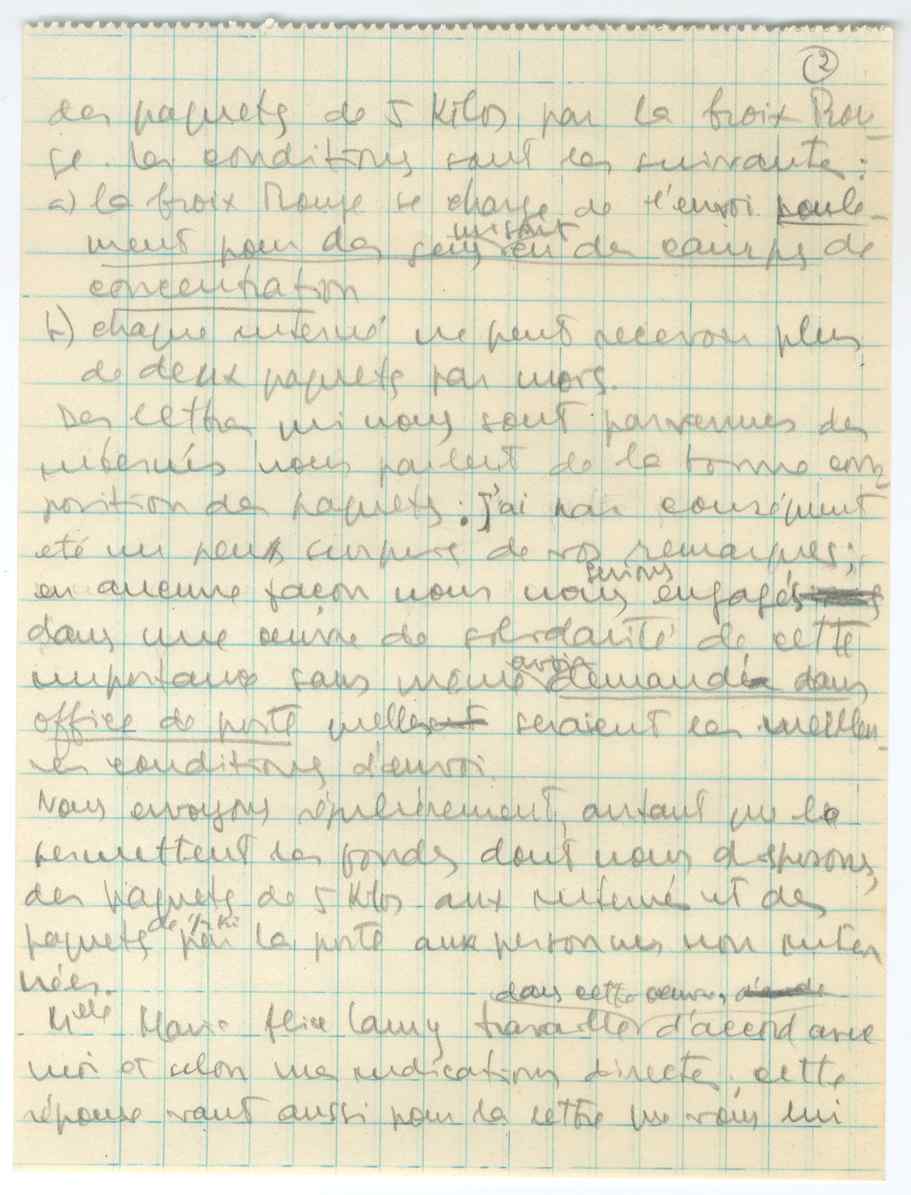 2
des paquets de 5 kilos par la Croix Rou-
ge. Les conditions sont les suivantes :
a) la Croix Rouge se charge de l'envoi seule-
ment pour des gens vivant en des camps de
concentration
b) chaque interné ne peut recevoir plus
de deux paquets par mois.
Des lettres qui nous sont parvenues des
internés nous parlent de la bonne com-
position des paquets : j'ai par conséquent
été un peu surpris de vos remarques ;
en aucune façon nous nous serions engagés
dans une œuvre de solidarité de cette
importance sans même avoir demandé dans
office de poste quelles seraient les meilleu-
res conditions d'envoi.
Nous envoyons régulièrement, autant que le
permettent les fonds dont nous disposons,
des paquets de 5 kilos aux internés et des
paquets de 1/2 ki par la poste aux personnes non inter
nées.
Melle Marie Alice Lamy travaille dans cette œuvre, d'accord avec
moi et selon mes indications directes, cette
réponse vaut aussi pour la lettre que vous lui